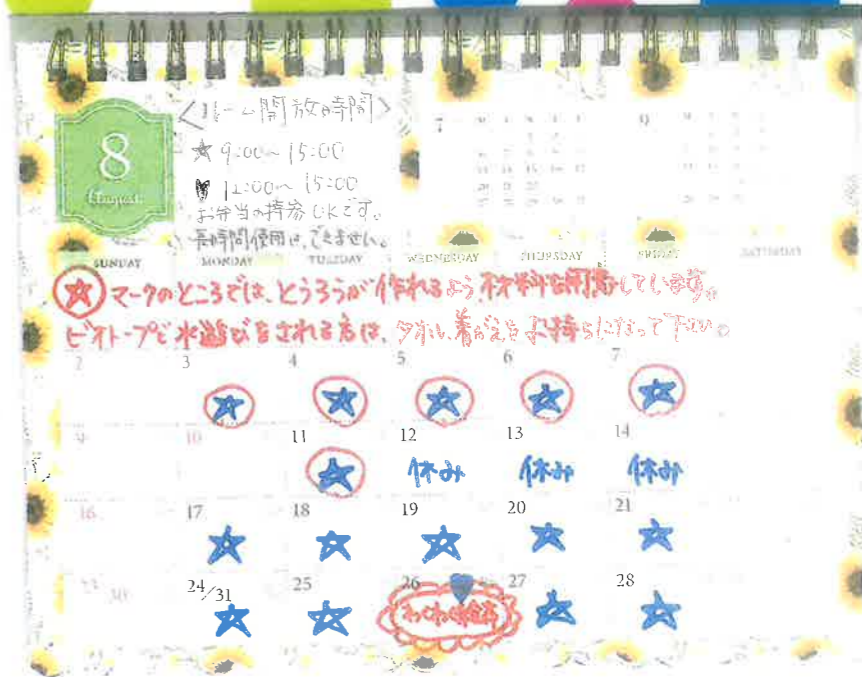 8
August
<ルーム開放時間>
★ 9:00~15:00
♥ 12:00~15:00
お弁当の持参OKです。
長時間使用は、できません。
7
9
SUNDAY MONDAY TUESDAY WEDNESDAY THURSDAY FRIDAY SATURDAY
★ マークのところでは、とうろうが作れるよう、材料を用意しています。
ビオトープで水遊びをされる方は、タオル、着がえをお持ちになって下さい。
2 3 4 5 6 7
★ ★ ★ ★ ★
9 10 11 12 13 14
★ 休み 休み 休み
16 17 18 19 20 21
★ ★ ★ ★ ★
23/30 24/31 25 26 ♥ 27 28
★ ★ ★ ★